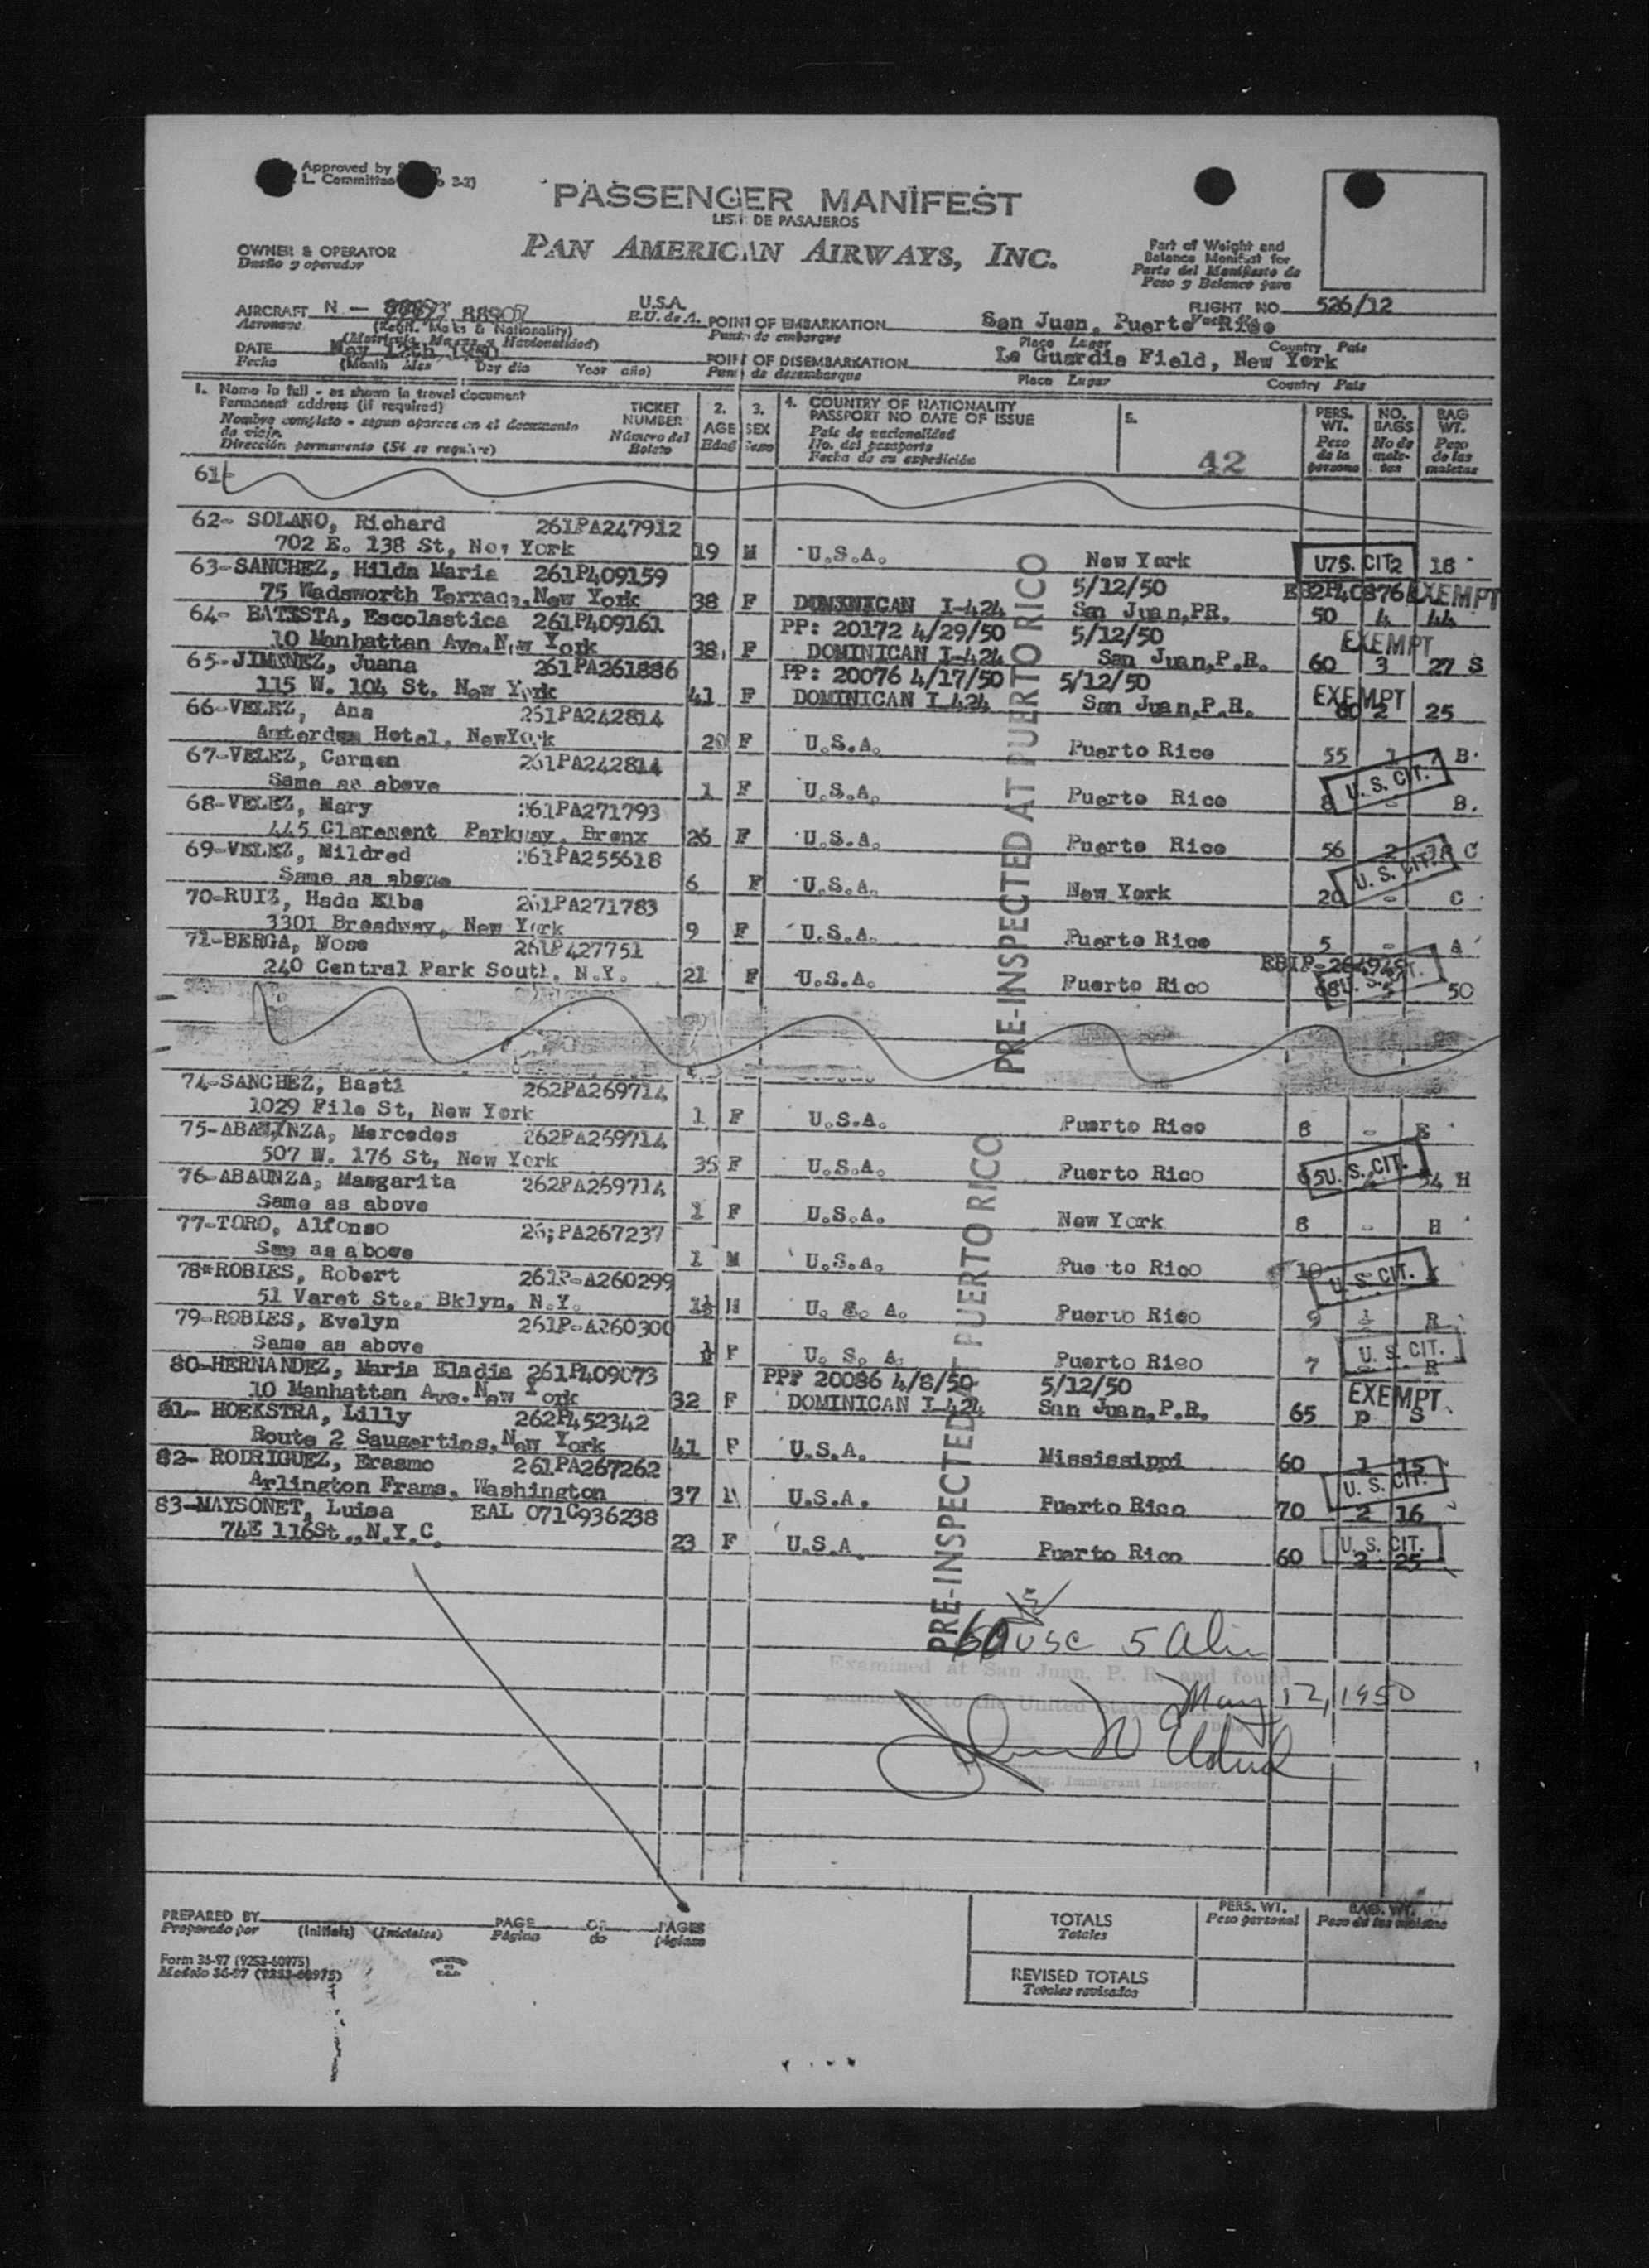 Approved by
L. Committee 3-2)
PASSENGER MANIFEST
LIST DE PASAJEROS
PAN AMERICAN AIRWAYS, INC.
OWNER & OPERATOR
Dueño y operador
Part of Weight and
Balance Manifest for
Parte del Manifiesto de
Peso y Balance para
FLIGHT NO. 526/12
AIRCRAFT N - 88907 U.S.A.
Aeronave (Regn. Marks & Nationality) E.U. de A.
(Matricula, Marcas y Nacionalidad)
POINT OF EMBARKATION San Juan, Puerto Rico
Punto de embarque Place Lugar Country Pais
DATE May 12th 1950
Fecha (Month Mes Day dia Year año)
POINT OF DISEMBARKATION La Guardia Field, New York
Punto de desembarque Place Lugar Country Pais
1. Name in full - as shown in travel document
Permanent address (if required)
Nombre completo - segun aparece en el documento
de viaje
Dirección permanente (Si se requiere)
TICKET
NUMBER
Número del
Boleto
2.
AGE
Edad
3.
SEX
Sexo
4. COUNTRY OF NATIONALITY
PASSPORT NO DATE OF ISSUE
Pais de nacionalidad
No. del pasaporte
Fecha de su expedición
5.
42
PERS.
WT.
Peso
de la
persona
NO.
BAGS
No de
male-
tas
BAG
WT.
Peso
de las
maletas
61-
62- SOLANO, Richard 261PA247912
702 E. 138 St, New York 19 M U.S.A. New York U.S. CIT 18
63-SANCHEZ, Hilda Maria 261P409159 5/12/50 EXEMPT
75 Wadsworth Terrace, New York 38 F DOMINICAN I-424 San Juan,PR. 50 4 44
64- BATISTA, Escolastica 261P409161 PP: 20172 4/29/50 5/12/50 EXEMPT
10 Manhattan Ave.New York 38 F DOMINICAN I-424 San Juan,P.R. 60 3 27 S
65-JIMINEZ, Juana 261PA261886 PP: 20076 4/17/50 5/12/50 EXEMPT
115 W. 104 St. New York 41 F DOMINICAN I-424 San Juan,P.R. 60 2 25
66-VELEZ, Ana 261PA242814
Amterdam Hotel, NewYork 20 F U.S.A. Puerto Rico 55 1 B.
67-VELEZ, Carmen 261PA242814 U. S. CIT.
Same as above 1 F U.S.A. Puerto Rico 8 - B.
68-VELEZ, Mary 261PA271793
445 Claremont Parkway, Bronx 26 F U.S.A. Puerto Rico 56 2 38 C
69-VELEZ, Mildred 261PA255618 U. S. CIT.
Same as above 6 F U.S.A. New York 20 - C
70-RUIZ, Hada Elba 261PA271783
3301 Broadway, New York 9 F U.S.A. Puerto Rico 5 - A
71-BERGA, Nose 261P427751
240 Central Park South, N.Y. 21 F U.S.A. Puerto Rico 50
74-SANCHEZ, Basti 262PA269714
1029 File St, New York 1 F U.S.A. Puerto Rico 8 - E
75-ABAUNZA, Mercedes 262PA269714
507 W. 176 St, New York 35 F U.S.A. Puerto Rico U. S. CIT. 54 H
76-ABAUNZA, Margarita 262PA269714
Same as above 1 F U.S.A. New York 8 - H
77-TORO, Alfonso 26;PA267237
Same as above 1 M U.S.A. Puerto Rico 10 U. S. CIT.
78*ROBIES, Robert 261P-A260299
51 Varet St., Bklyn, N.Y. 1½ M U. S. A. Puerto Rico 9 R
79-ROBIES, Evelyn 261P-A260300 U. S. CIT.
Same as above F U. S. A. Puerto Rico 7 - R
80-HERNANDEZ, Maria Eladia 261P409073 PP# 20086 4/8/50 5/12/50 EXEMPT
10 Manhattan Ave. New York 32 F DOMINICAN I-424 San Juan,P.R. 65 p S
81- HOEKSTRA, Lilly 262P452342
Route 2 Saugerties, New York 41 F U.S.A. Mississippi 60 1 15
82- RODRIGUEZ, Erasmo 261PA267262 U. S. CIT.
Arlington Frams, Washington 37 M U.S.A. Puerto Rico 70 2 16
83-MAYSONET, Luisa EAL 071C936238 U. S. CIT.
74E 116St., N.Y.C. 23 F U.S.A. Puerto Rico 60 2 25
PRE-INSPECTED AT PUERTO RICO
PRE-INSPECTED AT PUERTO RICO
USC 5 Alien
Examined at San Juan, P. R. and found
to the United States
May 12, 1950
Immigrant Inspector.
PREPARED BY
Preparado por (Initials) (Iniciales)
PAGE OF PAGES
Página de páginas
Form 36-97 (9253-60975)
Modelo 36-97 (9253-60975)
TOTALS
Totales
PERS. WT.
Peso personal
BAG. WT.
Peso de las maletas
REVISED TOTALS
Totales revisados